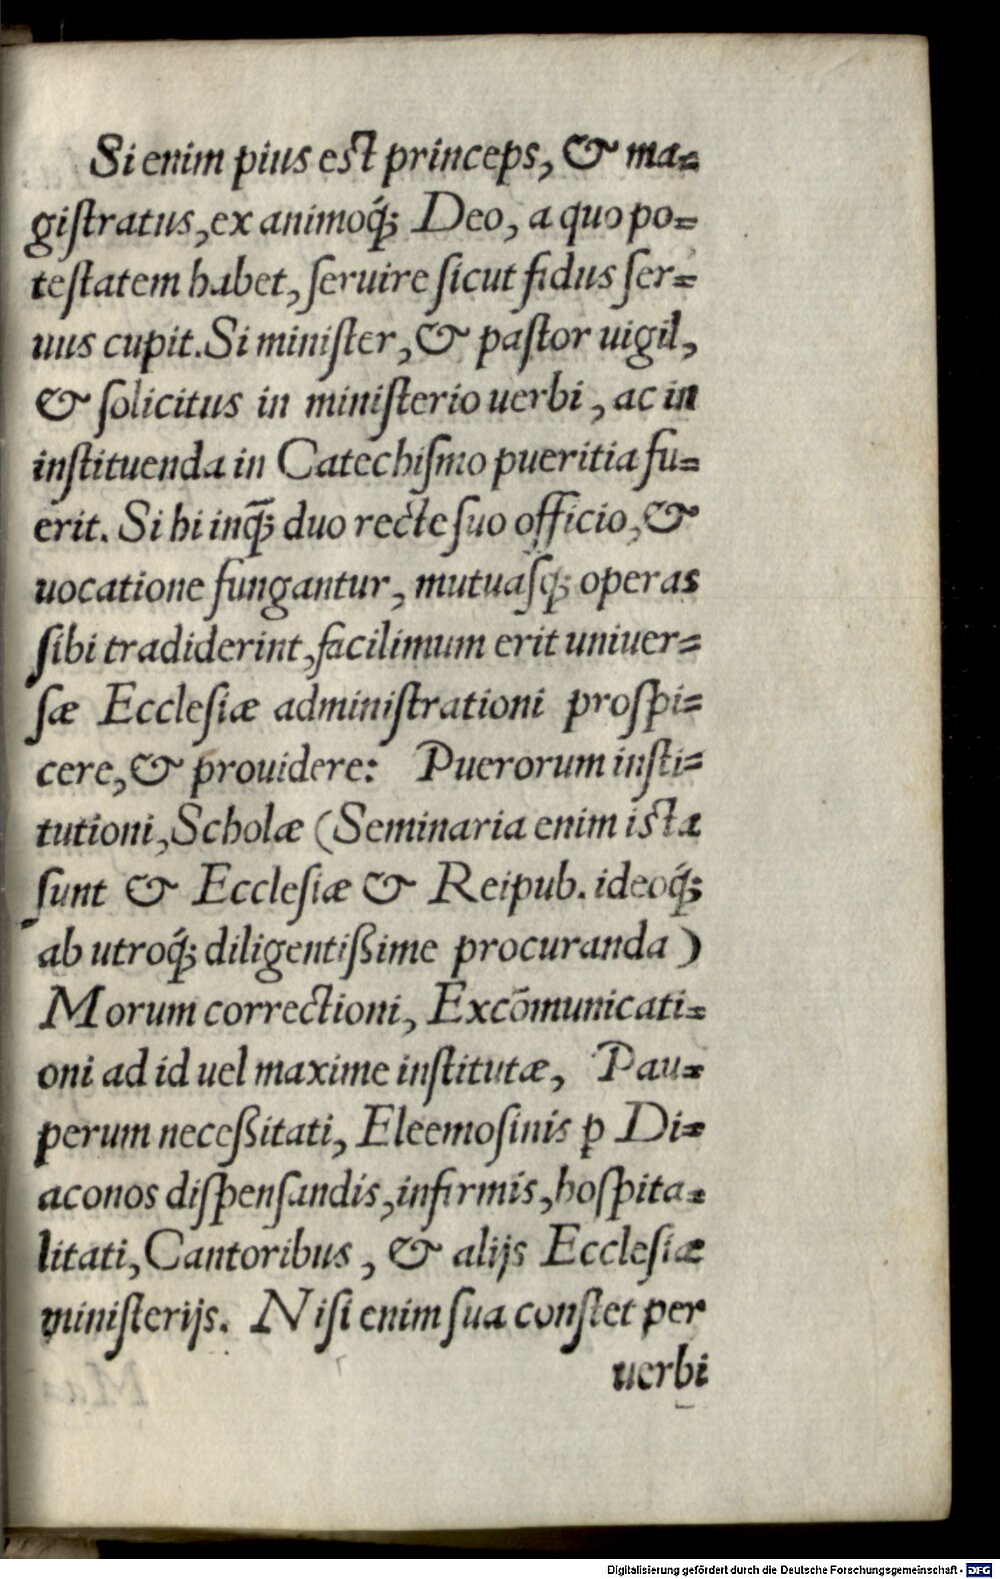 Si enim pius est princeps, & ma=
giſtratus, ex animoq́; Deo, a quo po=
teſtatem habet, ſeruire ſicut fidus ſer=
uus cupit. Si miniſter, & paſtor uigil,
& ſolicitus in miniſterio uerbi, ac in
inſtituenda in Catechiſmo pueritia fu=
erit. Si hi inq̃; duo recte ſuo officio, &
uocatione fungantur, mutuaſq; operas
ſibi tradiderint, facilimum erit uniuer=
ſæ Eccleſiæ adminiſtrationi proſpi=
cere, & prouidere: Puerorum inſti=
tutioni, Scholæ (Seminaria enim ista
ſunt & Eccleſiæ & Reipub. ideoq́;
ab utroq́; diligentißime procuranda)
Morum correctioni, Excõmunicati=
oni ad id uel maxime inſtitutæ, Pau=
perum neceßitati, Eleemoſinis ꝑ Di=
aconos diſpenſandis, infirmis, hoſpita=
litati, Cantoribus, & alijs Eccleſiæ
miniſterijs. Niſi enim ſua conſtet per
uerbi
Digitalisierung gefördert durch die Deutsche Forschungsgemeinschaft - DFG